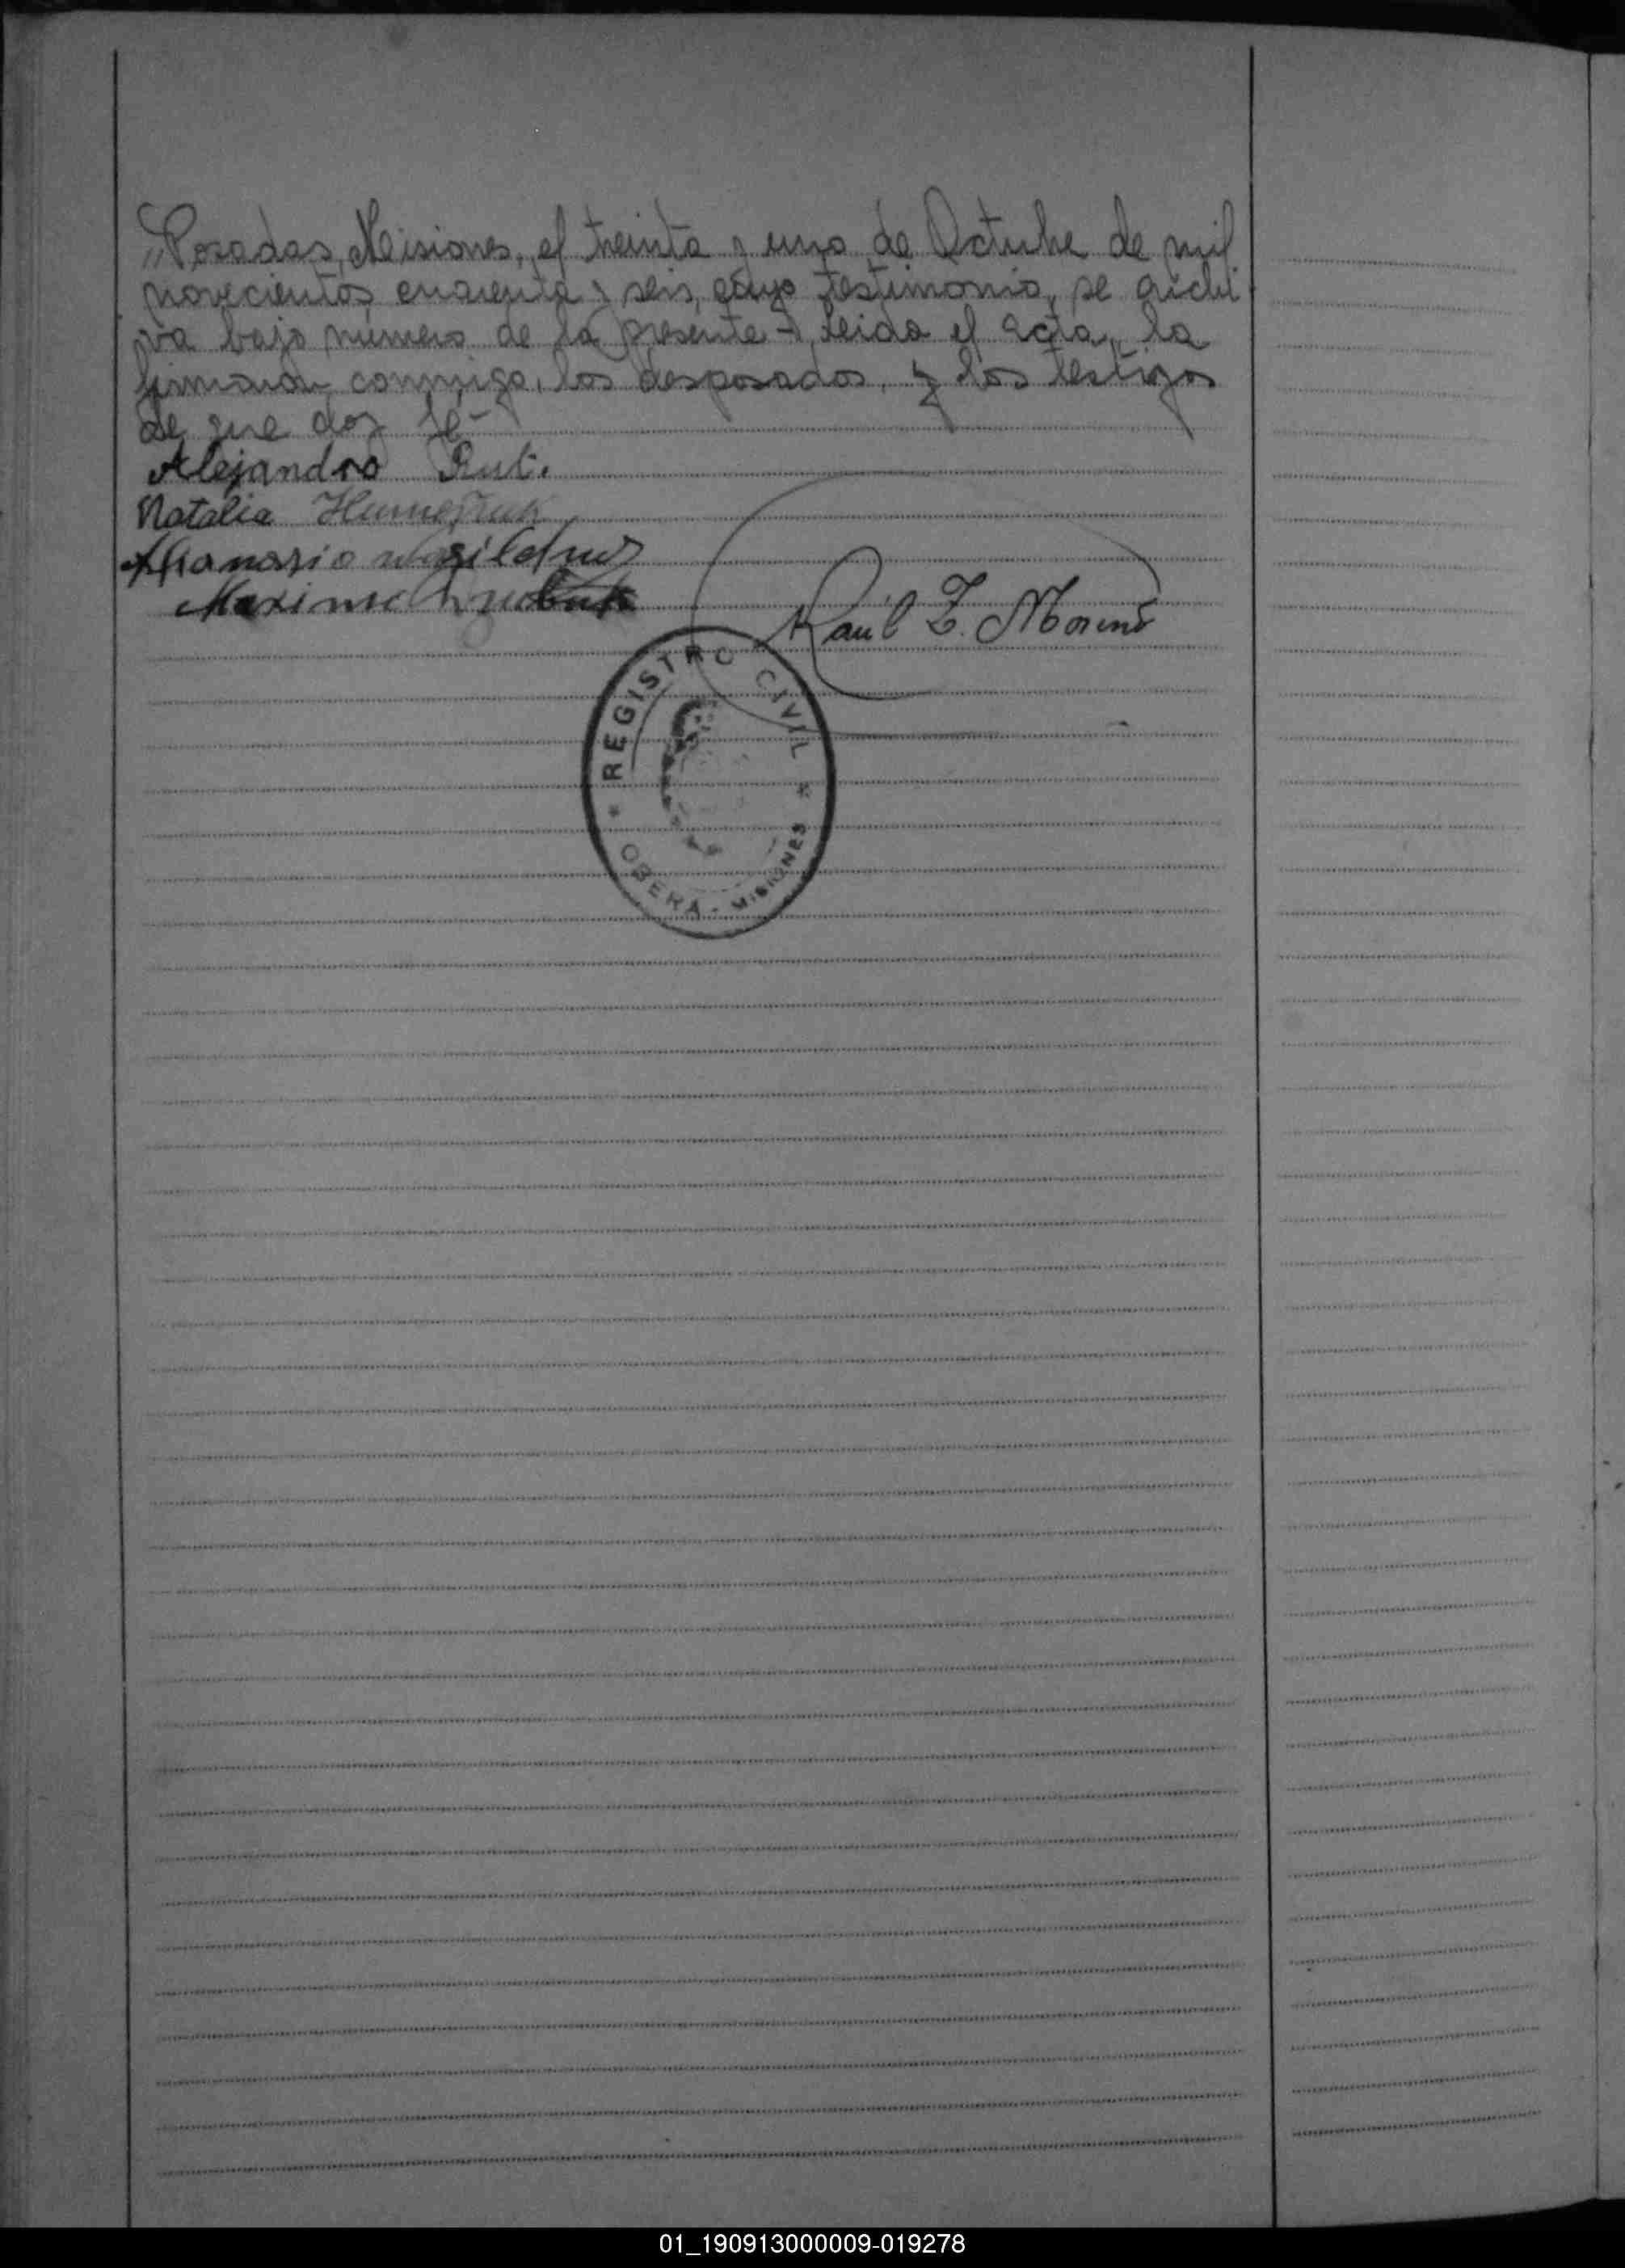 "Posadas, Misiones, el treinta y uno de Octubre de mil
novecientos cuarenta y seis, cuyo testimonio, se archi
va bajo número de la presente - Leida el acta, la
firmaron conmigo, los desposados, y los testigos
de que doy fé -
Alejandro
Natalia
Afanasio
Maximo
Raúl Z. Moreno
REGISTRO CIVIL
* OBERA - MISIONES *
01_190913000009-019278